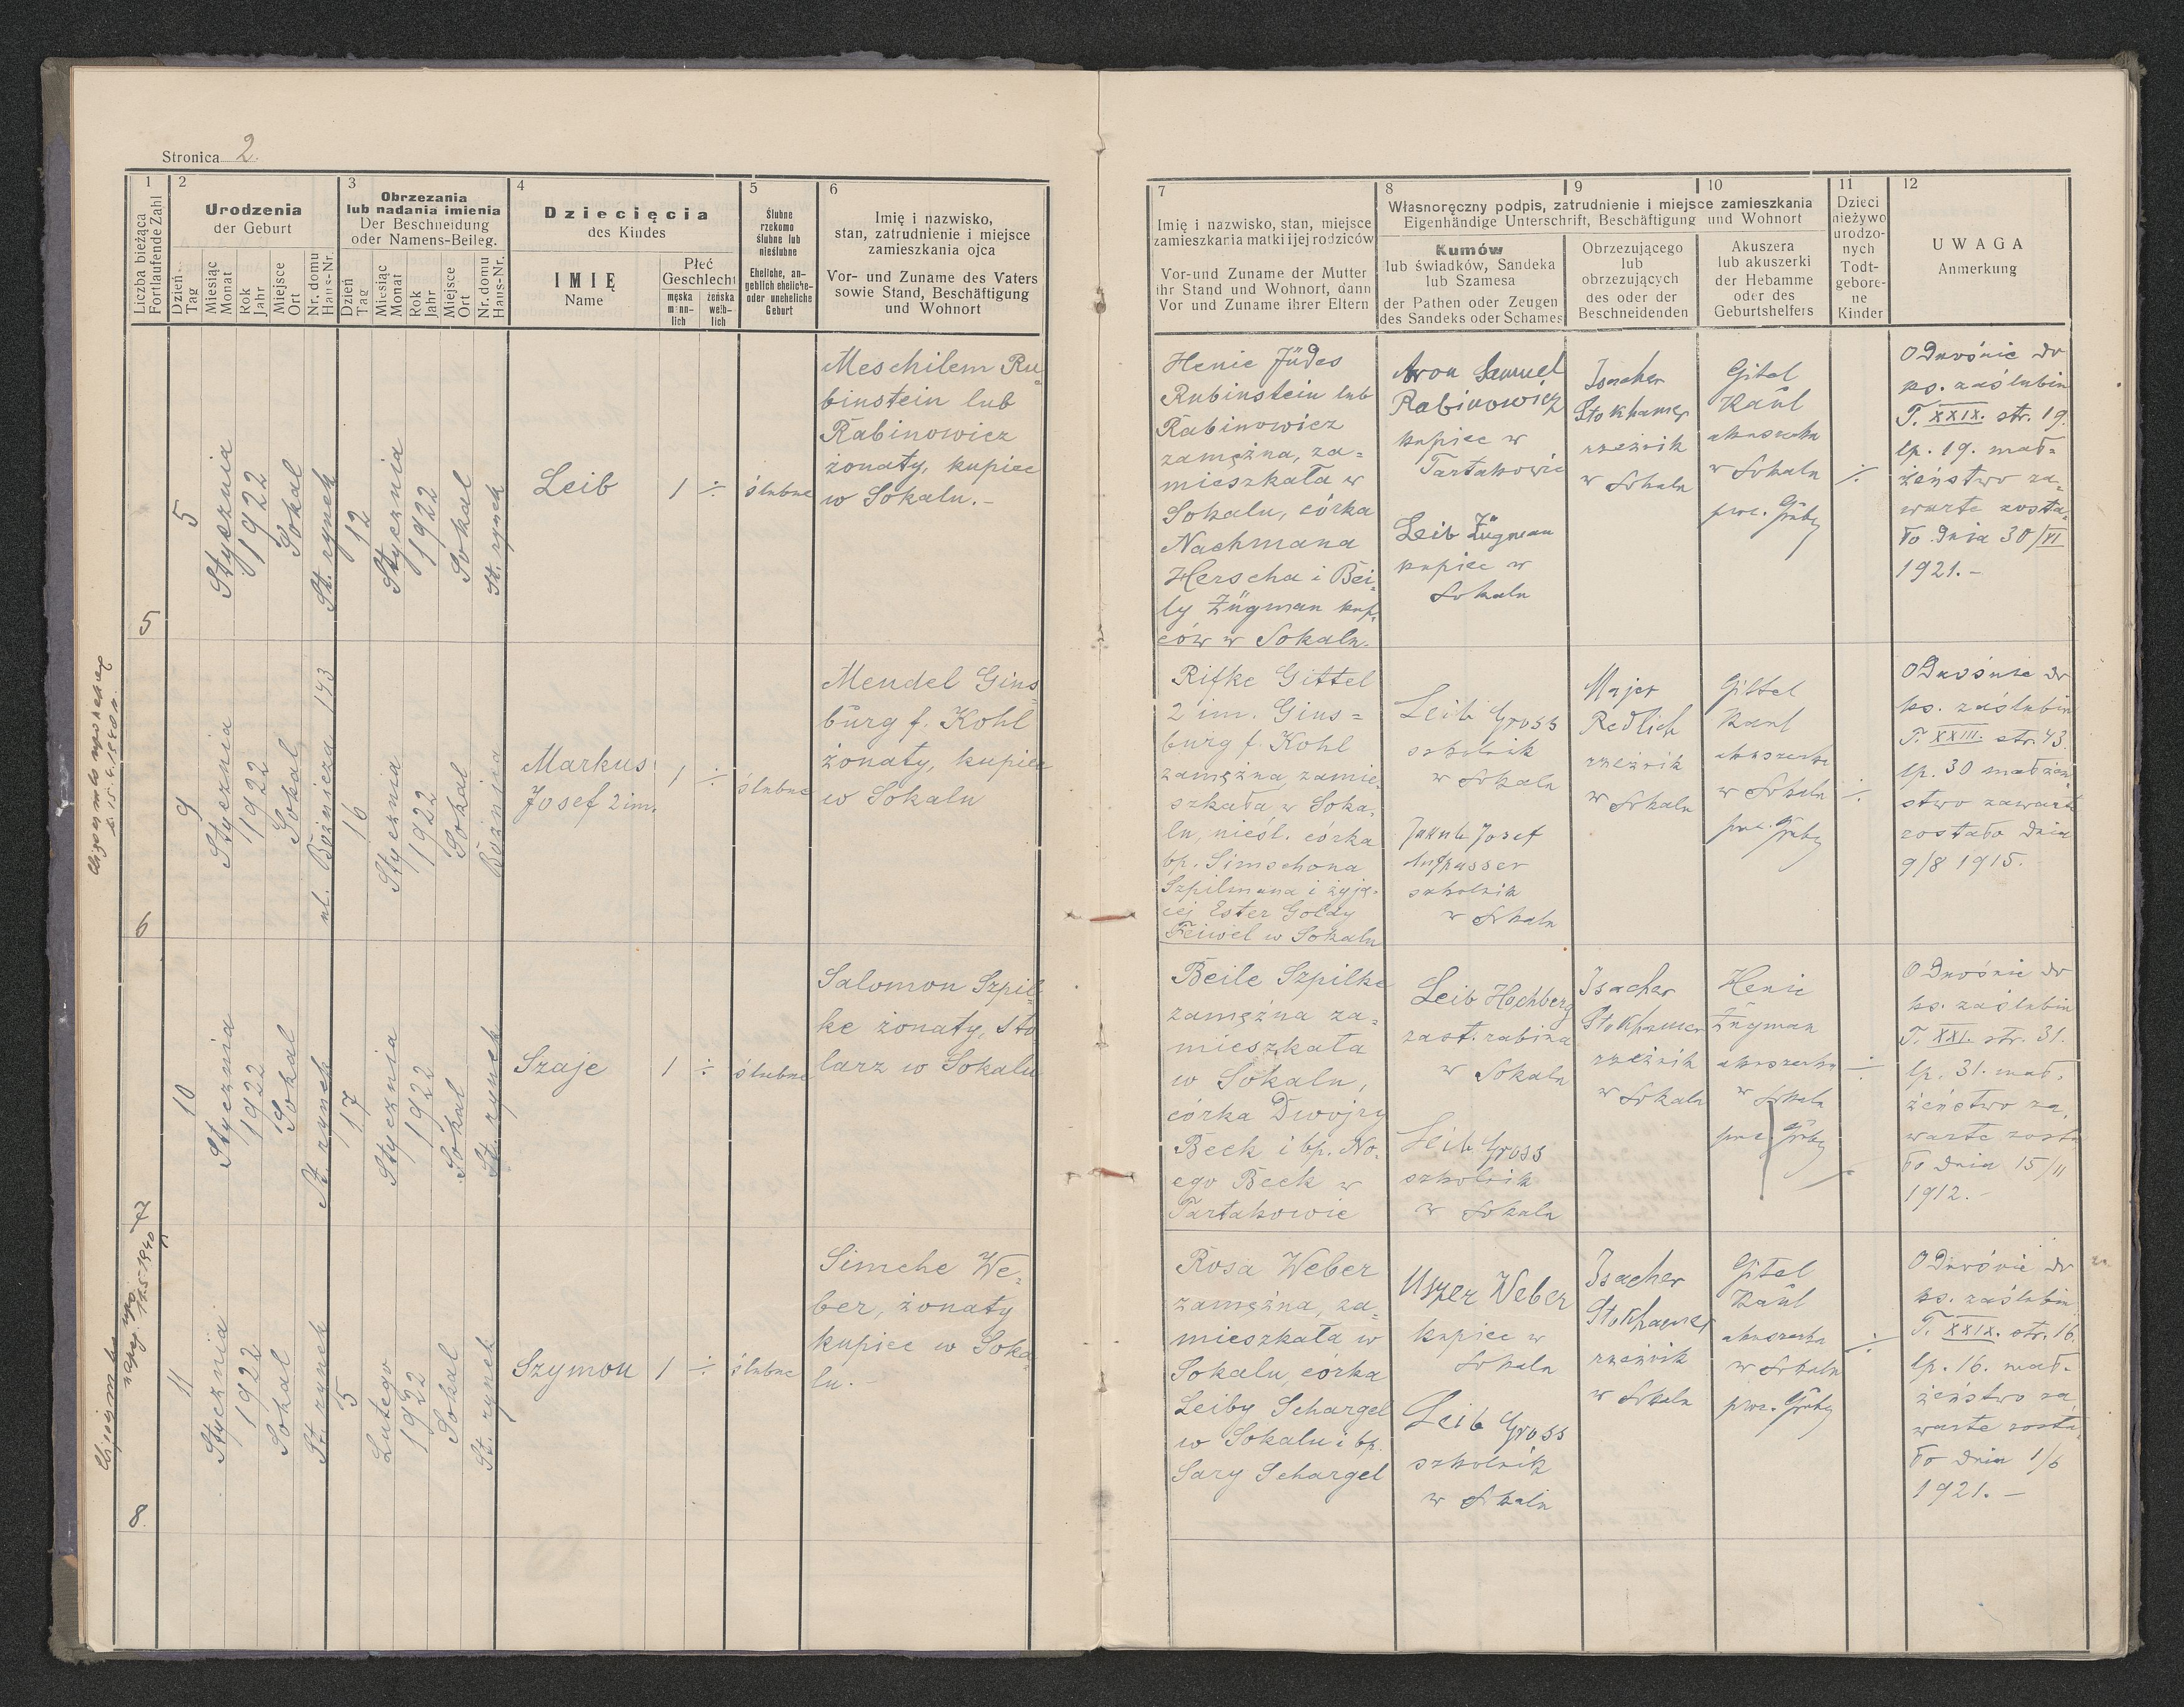 Stronica 2.
1
Liczba bieżąca
Fortlaufende Zahl
2
Urodzenia
der Geburt
Dzień
Tag
Miesiąc
Monat
Rok
Jahr
Miejsce
Ort
Nr. domu
Haus-Nr.
3
Obrzezania
lub nadania imienia
Der Beschneidung
oder Namens-Beileg.
Dzień
Tag
Miesiąc
Monat
Rok
Jahr
Miejsce
Ort
Nr. domu
Haus-Nr.
4
Dziecięcia
des Kindes
IMIĘ
Name
Płeć
Geschlecht
męska
männ-
lich
żeńska
weib-
lich
5
Ślubne
rzekomo
ślubne lub
nieślubne
Eheliche, an-
geblich eheliche-
oder uneheliche
Geburt
6
Imię i nazwisko,
stan, zatrudnienie i miejsce
zamieszkania ojca
Vor- und Zuname des Vaters
sowie Stand, Beschäftigung
und Wohnort
7
Imię i nazwisko, stan, miejsce
zamieszkania matki i jej rodziców
Vor-und Zuname der Mutter
ihr Stand und Wohnort, dann
Vor und Zuname ihrer Eltern
8
9
10
Własnoręczny podpis, zatrudnienie i miejsce zamieszkania
Eigenhändige Unterschrift, Beschäftigung und Wohnort
Kumów
lub świadków, Sandeka
lub Szamesa
der Pathen oder Zeugen
des Sandeks oder Schames
Obrzezującego
lub
obrzezujących
des oder der
Beschneidenden
Akuszera
lub akuszerki
der Hebamme
oder des
Geburtshelfers
11
Dzieci
nieżywo
urodzo-
nych
Todt-
gebore-
ne
Kinder
12
UWAGA
Anmerkung
5
5
Stycznia
1922
Sokal
St. rynek
12
Stycznia
1922
Sokal
St. rynek
Leib
1
÷
ślubne
Meschilem Ru-
binstein lub
Rabinowicz
żonaty, kupiec
w Sokalu.-
Henie Jüdes
Rubinstein lub
Rabinowicz
zamężna, za=
mieszkała w
Sokalu, córka
Nachmana
Herscha i Bei-
ly Zügman kup-
ców w Sokalu.
Aron Samuel
Rabinowicz
kupiec w
Tartakowie
Leib Zügman
kupiec w
Sokalu
Isacher
Stokhamer
rzeźnik
w Sokalu
Gitel
Kaul
akuszerka
w Sokalu
÷
Odnośnie do
ks. zaślubin
T. XXIX. str. 19.
lp. 19. mał-
żeństwo za-
warte zosta-
ło dnia 30/VI
1921.-
6
9
Stycznia
1922
Sokal
ul. Bóżnicza 143
16
Stycznia
1922
Sokal
Bóżnica
Markus
Josef 2 im.
1
÷
ślubne
Mendel Gins-
burg f. Kohl
żonaty, kupiec
w Sokalu
Rifke Gittel
2 im. Gins=
burg f. Kohl
zamężna, zamie-
szkała w Soka-
lu, nieśl. córka
bp. Simschona
Szpilmana i żyją-
cej Ester Goldy
Feiwel w Sokalu
Leib Gross
szkolnik
w Sokalu
Jakub Josef
Aufpasser
szkolnik
w Sokalu
Majer
Redlich
rzeźnik
w Sokalu
Gittel
Kaul
akuszerka
w Sokalu
÷
Odnośnie do
ks. zaślubin
T. XXIII. str. 43.
lp. 30 małżeń-
stwo zawarte
zostało dnia
9/8 1915.
10
Stycznia
1922
Sokal
St. rynek
17
Stycznia
1922
Sokal
St. rynek
Szaje
1
÷
ślubne
Salomon Szpil-
ke żonaty, sto
larz w Sokalu
Beile Szpilke
zamężna za-
mieszkała
w Sokalu,
córka Dwojry
Beck i bp. No-
ego Beck w
Tartakowie
Leib Hochberg
zast. rabina
w Sokalu
Leib Gross
szkolnik
w Sokalu
Isacher
Stokhamer
rzeźnik
w Sokalu
Henie
Zügman
akuszerka
w Sokalu
÷
Odnośnie do
ks. zaślubin
T. XXI. str. 31.
lp. 31. mał-
żeństwo za-
warte zosta
ło dnia 15/11
1912.-
8.
11
Stycznia
1922
Sokal
St. rynek
5
Lutego
1922
Sokal
St. rynek
Szymon
1
÷
ślubne
Simche We-
ber, żonaty
kupiec w Soka-
lu.-
Rosa Weber
zamężna, za-
mieszkała w
Sokalu, córka
Leiby Schargel
w Sokalu i bp.
Sary Schargel
Uszer Weber
kupiec w
Sokalu
Leib Gross
szkolnik
w Sokalu
Isacher
Stokhamer
rzeźnik
w Sokalu
Gitel
Kaul
akuszerka
w Sokalu
÷
Odnośnie do
ks. zaślubin
T. XXIX. str. 16.
lp. 16. mał-
żeństwo za
warte zosta-
ło dnia 1/6
1921.-